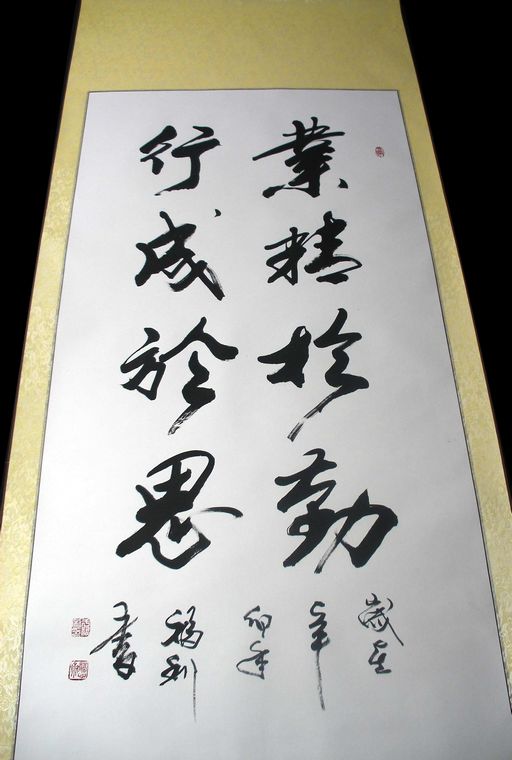 業精於勤
行成於思
歲在
辛
卯年
福利
書